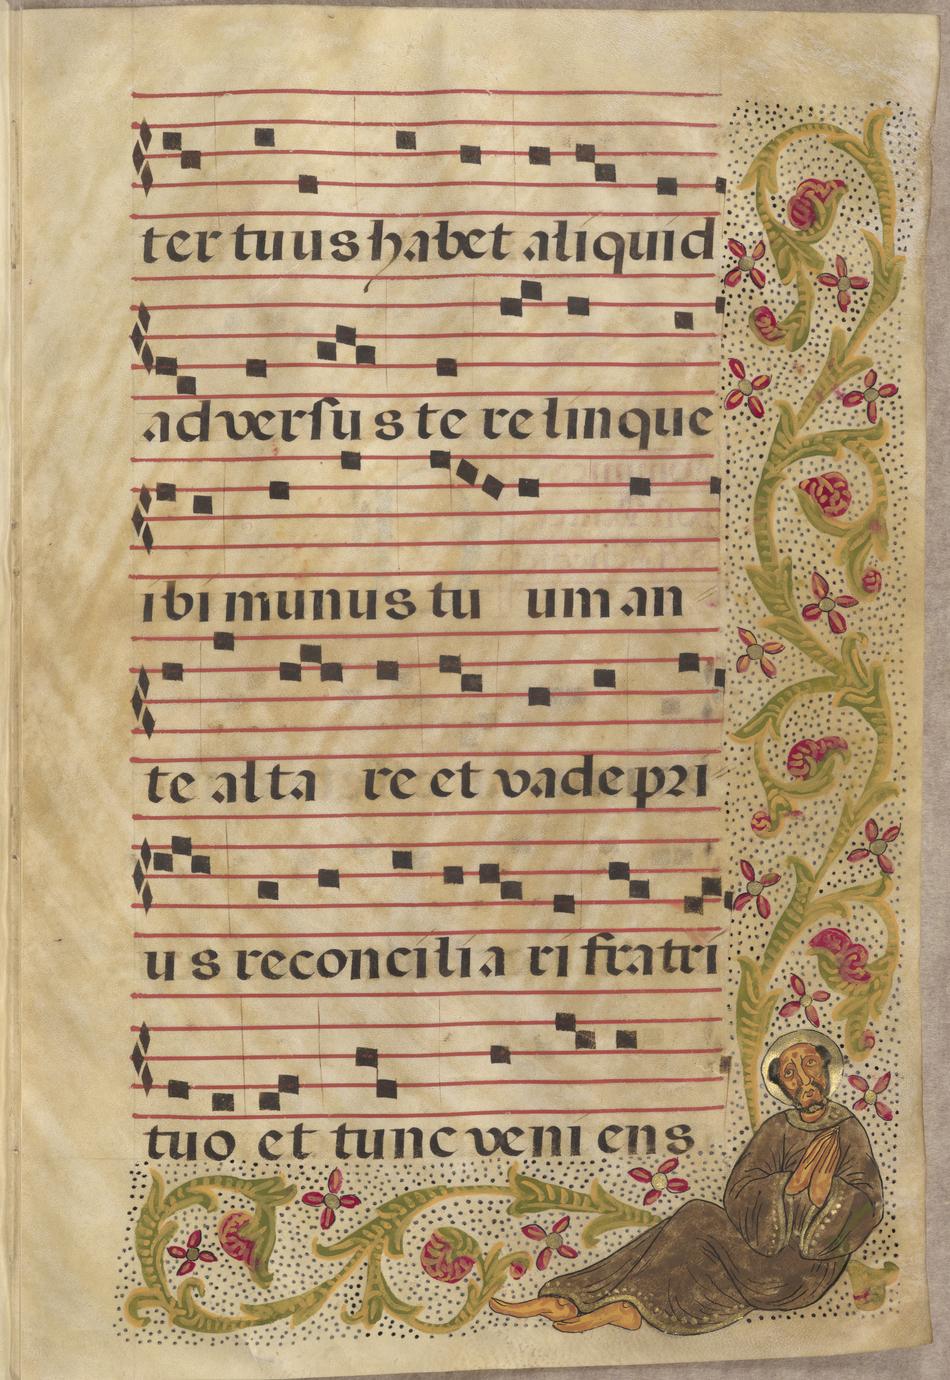 ter tuus habet aliquid
adversus te relinque
ibi munus tuum an
te altare et vade pri
us reconciliari fratri
tuo et tunc veniens